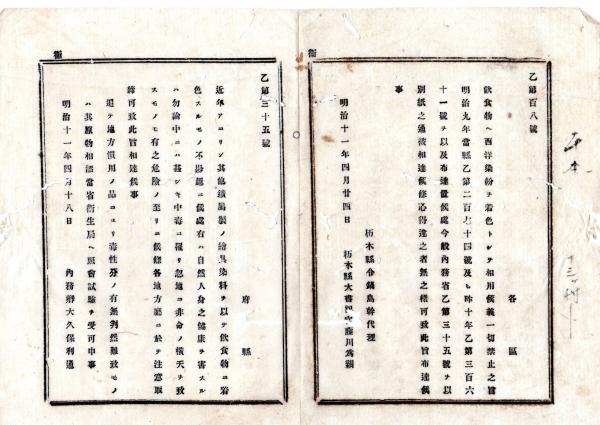 乙第百八號
各區
飲食物ヘ西洋染粉ヲ着色トシテ相用候義一切禁止之旨
明治九年當縣乙第二百七十四號及ヒ昨十年乙第三百六
十一號ヲ以及布達置候處今般內務省乙第三十五號ヲ以
別紙之通被相達候條心得違之者無之樣可致此旨布達候
事
明治十一年四月廿四日
栃木縣令鍋島幹代理
栃木縣大書記官藤川爲親
衞
乙第三十五號
府縣
近年アニリン其他鑛屬製ノ繪具染料ヲ以テ飲食物ニ着
色スルモノ不尠趣ニ候處右ハ自然人身之健康ヲ害スル
ハ勿論中ニハ甚シキ中毒ニ罹リ忽地ニ非命ノ橫夭ヲ致
スモノモ有之危險ノ至リニ候條各地方廳ニ於テ注意取
締可致此旨相達候事
追テ地方慣用ノ品ニヨリ毒性分ノ有無判然難致モノ
ハ其原物相添當省衞生局ヘ照會試驗ヲ受可申事
明治十一年四月十八日
內務卿大久保利通
衞